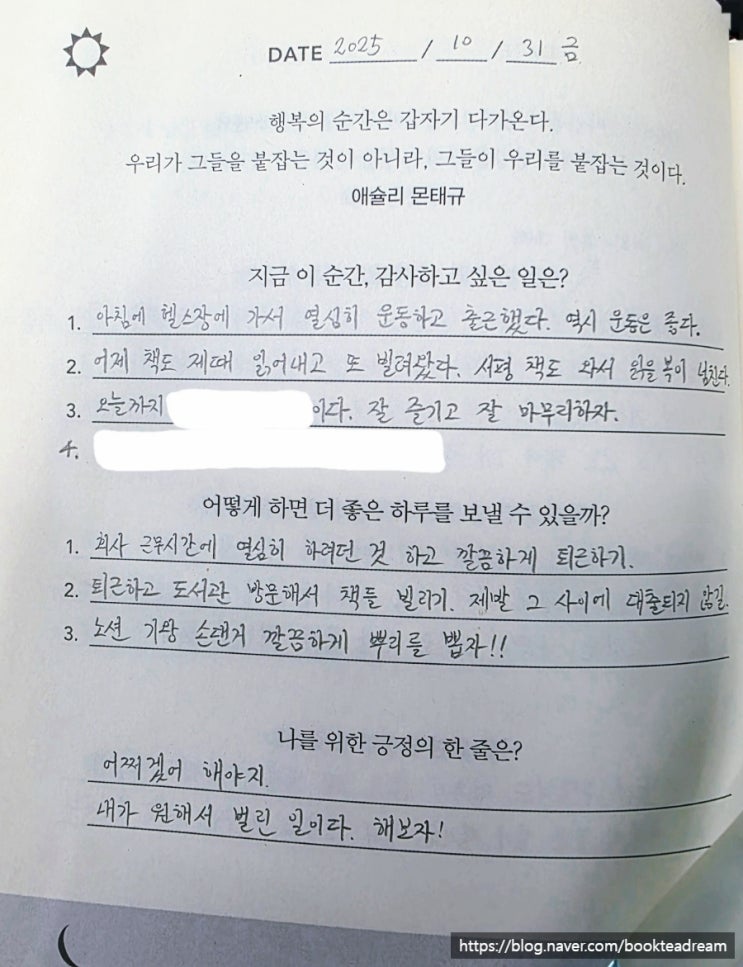 DATE 2025 / 10 / 31 금
행복의 순간은 갑자기 다가온다.
우리가 그들을 붙잡는 것이 아니라, 그들이 우리를 붙잡는 것이다.
애슐리 몬태규
지금 이 순간, 감사하고 싶은 일은?
1. 아침에 헬스장에 가서 열심히 운동하고 출근했다. 역시 운동은 좋다.
2. 어제 책도 제때 읽어내고 또 빌려왔다. 서평 책도 와서 읽을 복이 넘친다.
3. 오늘까지 이다. 잘 즐기고 잘 마무리하자.
4.
어떻게 하면 더 좋은 하루를 보낼 수 있을까?
1. 회사 근무시간에 열심히 하려던 것 하고 깔끔하게 퇴근하기.
2. 퇴근하고 도서관 방문해서 책들 빌리기. 제발 그 사이에 대출되지 않길.
3. 노션 기왕 손댄거 깔끔하게 뿌리를 뽑자!!
나를 위한 긍정의 한 줄은?
어찌겠어 해야지.
내가 원해서 벌린 일이다. 해보자!
https://blog.naver.com/bookteadream